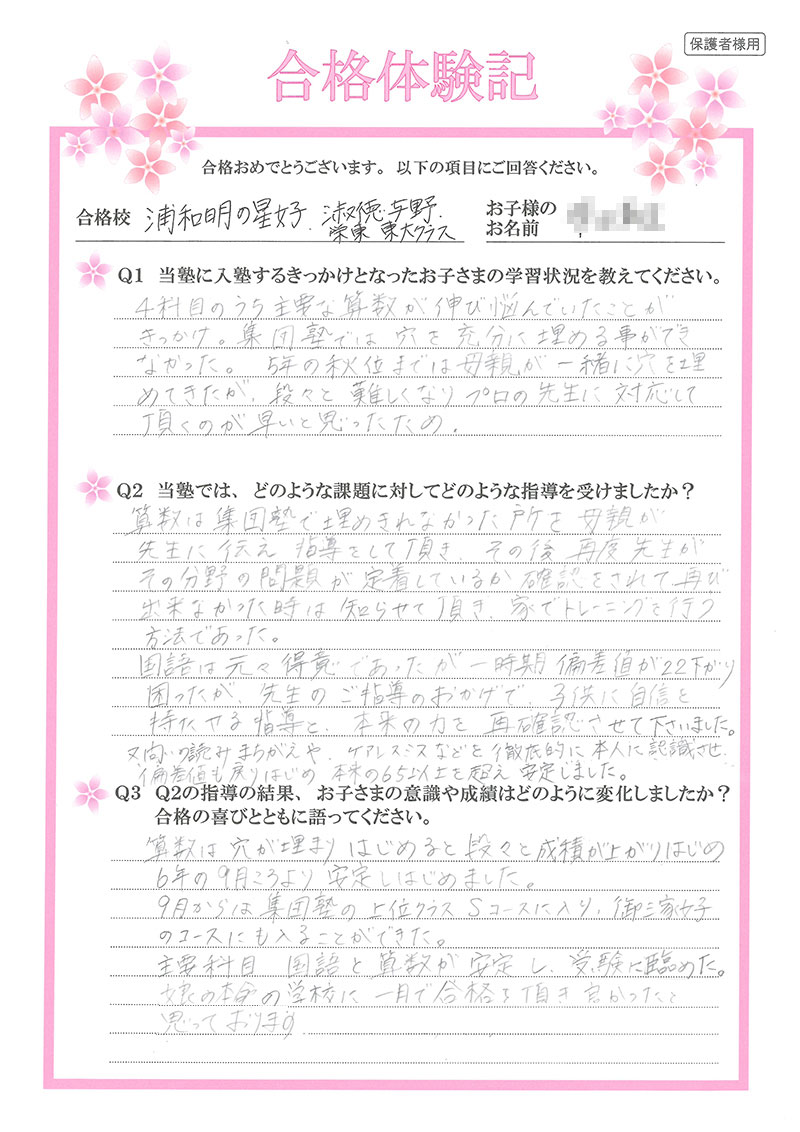 保護者様用
合格体験記
合格おめでとうございます。以下の項目にご回答ください。
合格校 浦和明の星女子、淑徳与野、
栄東 東大クラス
お子様の
お名前
Q1 当塾に入塾するきっかけとなったお子さまの学習状況を教えてください。
4科目のうち主要な算数が伸び悩んでいたことが
きっかけ。集団塾では穴を充分に埋める事ができ
なかった。5年の秋位までは母親が一緒に穴を埋
めてきたが、段々と難しくなりプロの先生に対応して
頂くのが早いと思ったため。
Q2 当塾では、どのような課題に対してどのような指導を受けましたか？
算数は集団塾で埋めきれなかった所を母親が
先生に伝え指導をして頂き、その後再度先生が
その分野の問題が定着しているか確認をされて再び
出来なかった時は知らせて頂き、家でトレーニングを行う
方法であった。
国語は元々得意であったが一時期偏差値が22下がり
困ったが、先生のご指導のおかげで、子供に自信を
持たせる指導と、本来の力を再確認させて下さいました。
又問いの読みまちがえや、ケアレスミスなどを徹底的に本人に認識させ
偏差値も戻りはじめ本来の65以上を超え安定しました。
Q3 Q2の指導の結果、お子さまの意識や成績はどのように変化しましたか？
合格の喜びとともに語ってください。
算数は穴が埋まりはじめると段々と成積が上がりはじめ
6年の9月ころより安定しはじめました。
9月からは集団塾の上位クラスSコースに入り、御三家女子
のコースにも入ることができた。
主要科目 国語と算数が安定し、受験に臨めた。
娘の本命の学校に一月で合格を頂き良かったと
思っております